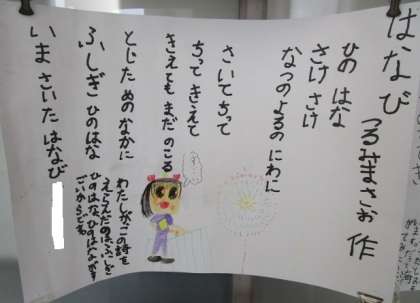 はなび
つるみまさお 作
ひの はな
さけ さけ
なつのよるの にわに
さいて ちって
ちって きえて
きえても まだ のこる
とじた めの なかに
ふしぎ ひのはな
いま さいた はなび
わたしが、この詩を
えらんだのは、ふしぎ
ひのはな、ひのはながす
ごいからです。